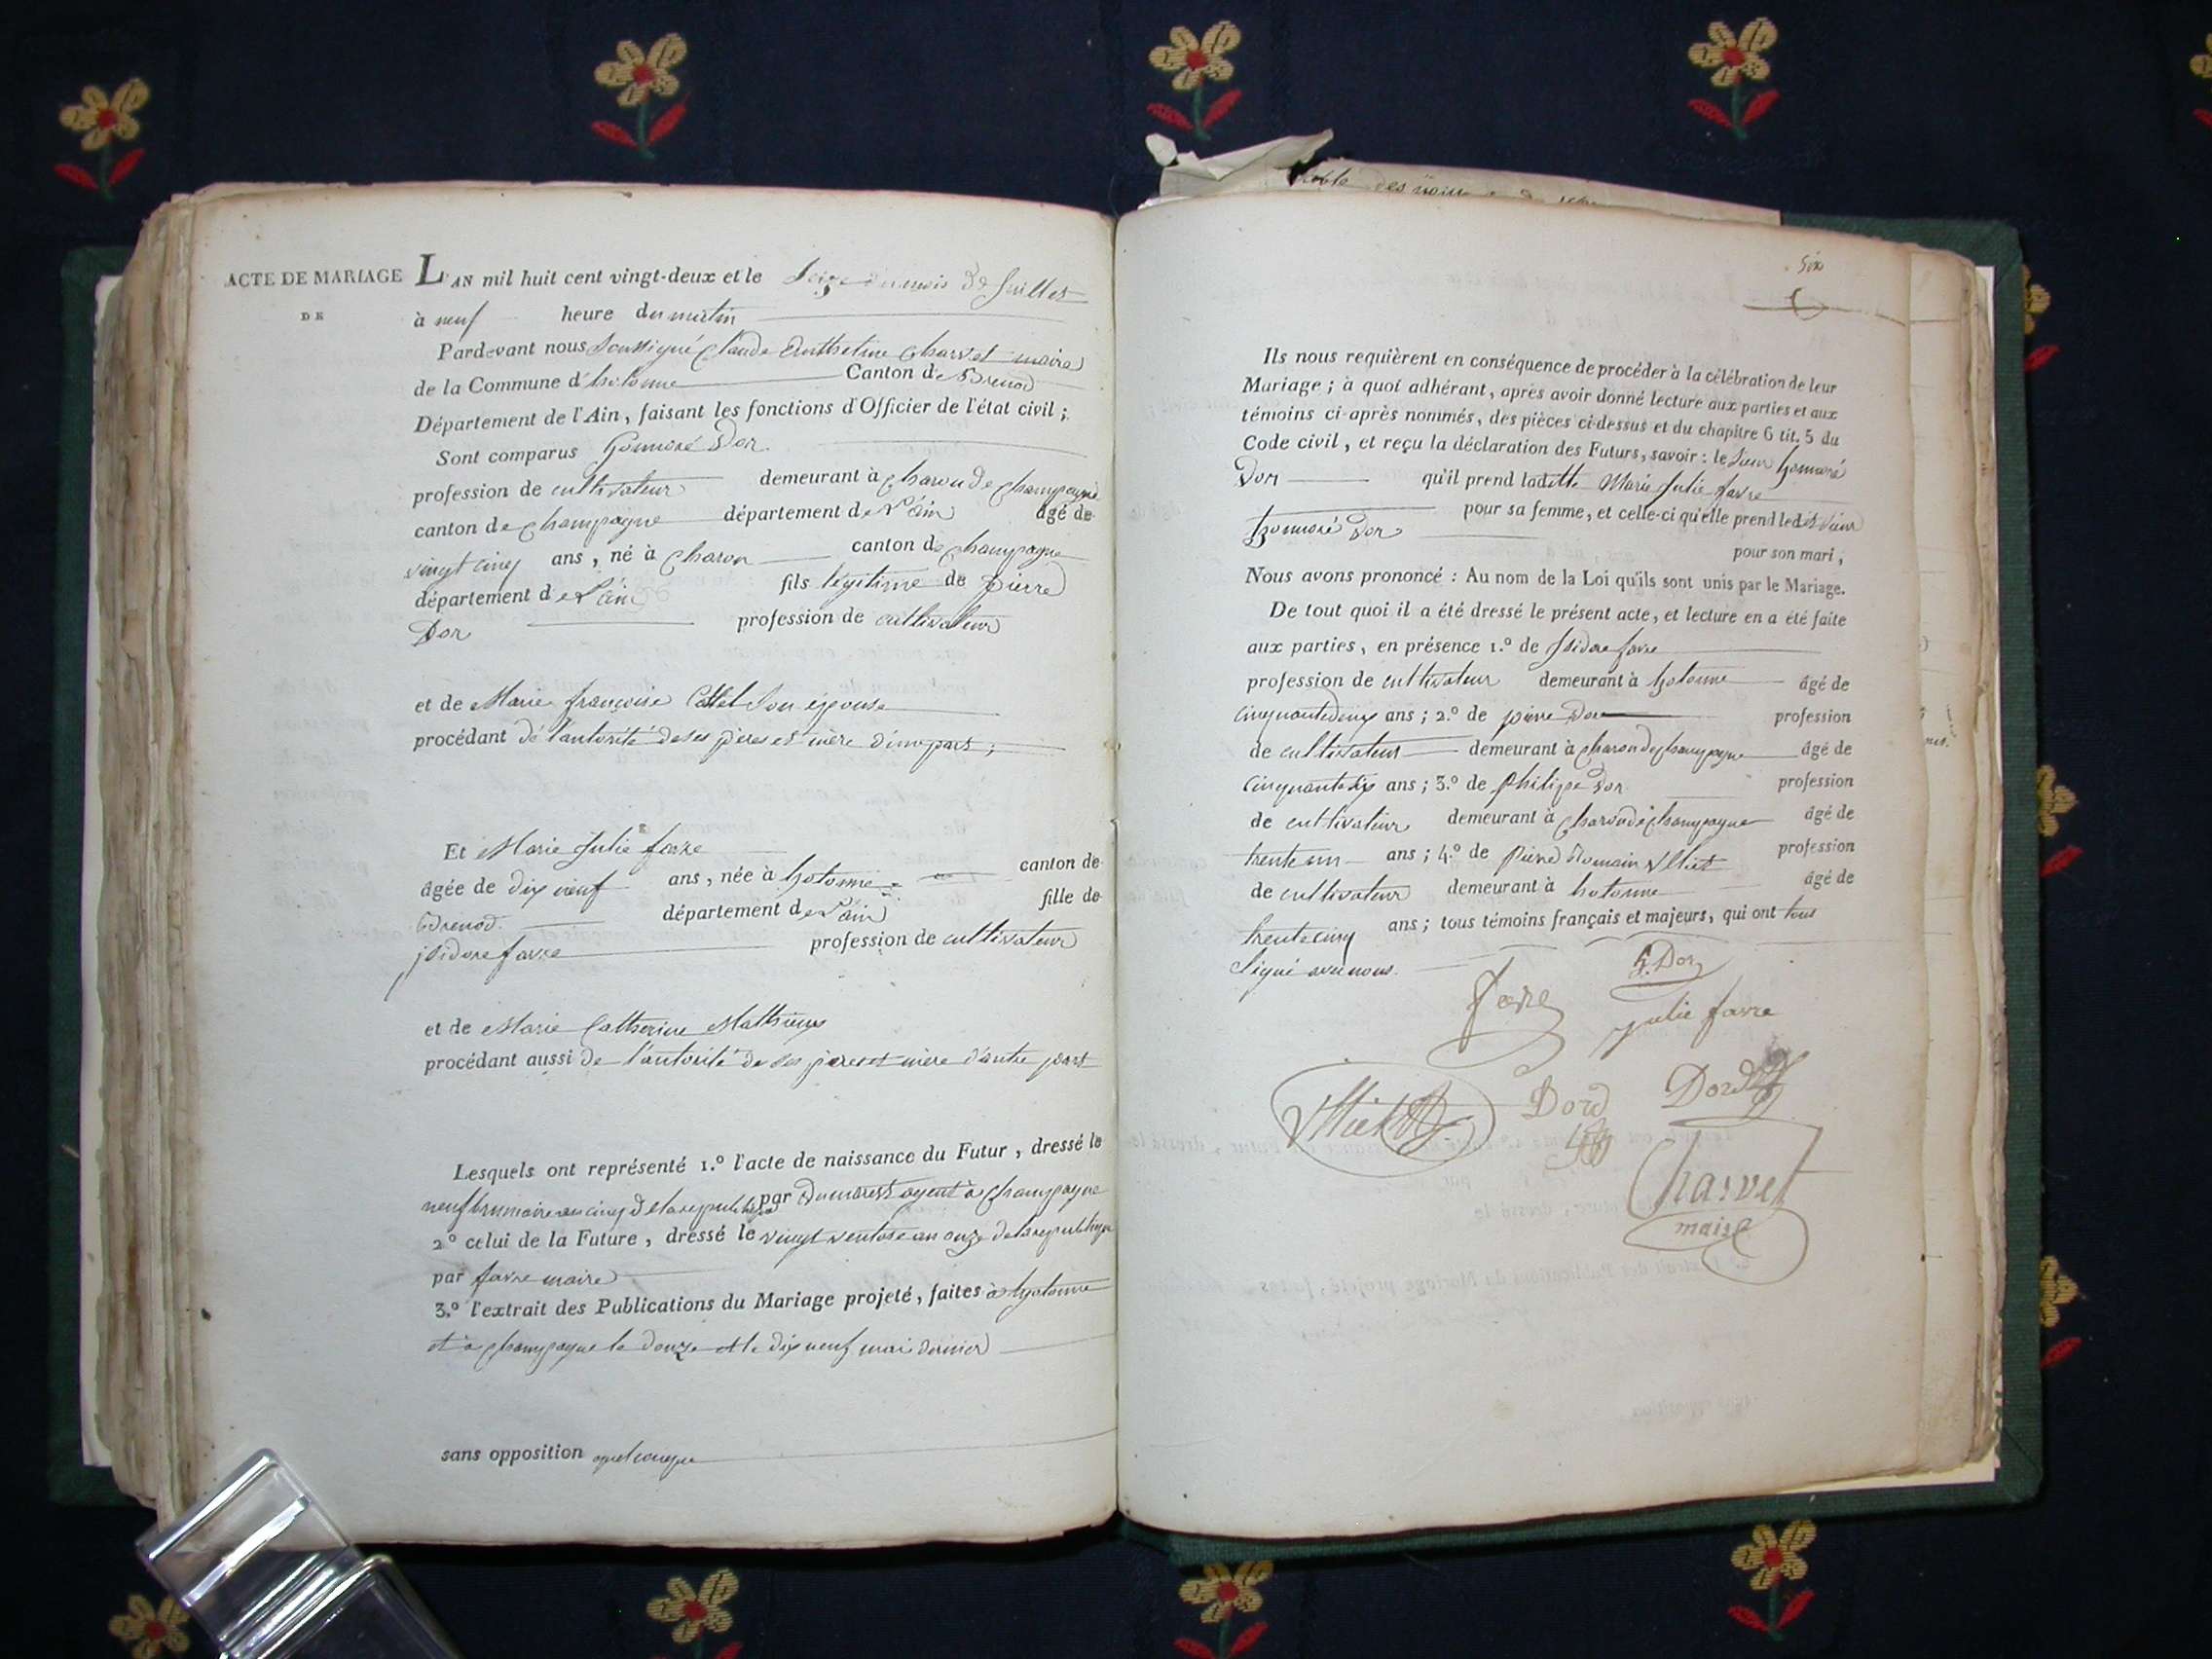 ACTE DE MARIAGE
DE
L'AN mil huit cent vingt-deux et le Seize du mois de Juillet
à neuf heure du matin
Pardevant nous soussigné Claude Charvet maire
de la Commune d'hotonne Canton de Brenod
Département de l'Ain, faisant les fonctions d'Officier de l'état civil ;
Sont comparus honnoré Dor
profession de cultivateur demeurant à charon de champagne
canton de champagne département de L'ain âgé de
vingt cinq ans, né à charon canton de champagne
département de L'ain fils légitime de pierre
Dor profession de cultivateur
et de Marie françoise son épouse
procédant de l'autorité de ses père et mère d'une part ;
Et Marie Julie favre
âgée de dix neuf ans, née à hotonne canton de
Brenod département de L'ain fille de
isidore favre profession de cultivateur
et de Marie Catherine Mathieux
procédant aussi de l'autorité de ses père et mère d'autre part
Lesquels ont représenté 1.º l'acte de naissance du Futur, dressé le
neuf brumaire an cinq de la republique par Dumarest agent à champagne
2º celui de la Future, dressé le vingt ventose an onze de la republique
par favre maire
3.º l'extrait des Publications du Mariage projeté, faites à hotonne
et à champagne le douze et le dix neuf mai dernier
sans opposition quelconque
table des
six
Ils nous requièrent en conséquence de procéder à la célébration de leur
Mariage ; à quoi adhérant, après avoir donné lecture aux parties et aux
témoins ci-après nommés, des pièces ci-dessus et du chapitre 6 tit. 5 du
Code civil, et reçu la déclaration des Futurs, savoir : le Sieur honnoré
Dor qu'il prend ladette Marie Julie favre
pour sa femme, et celle-ci qu'elle prend ledit Sieur
honnoré Dor pour son mari,
Nous avons prononcé : Au nom de la Loi qu'ils sont unis par le Mariage.
De tout quoi il a été dressé le présent acte, et lecture en a été faite
aux parties, en présence 1.º de Isidore favre
profession de cultivateur demeurant à hotonne âgé de
cinquante deux ans ; 2.º de pierre Dor profession
de cultivateur demeurant à charon de champagne âgé de
cinquante six ans ; 3.º de philipe Dor profession
de cultivateur demeurant à charon de champagne âgé de
trente un ans ; 4.º de pierre Romain profession
de cultivateur demeurant à hotonne âgé de
trente cinq ans ; tous témoins français et majeurs, qui ont tous
signé avec nous.
favre
h. Dor
julie favre
Dord
Dord
Charvet
maire